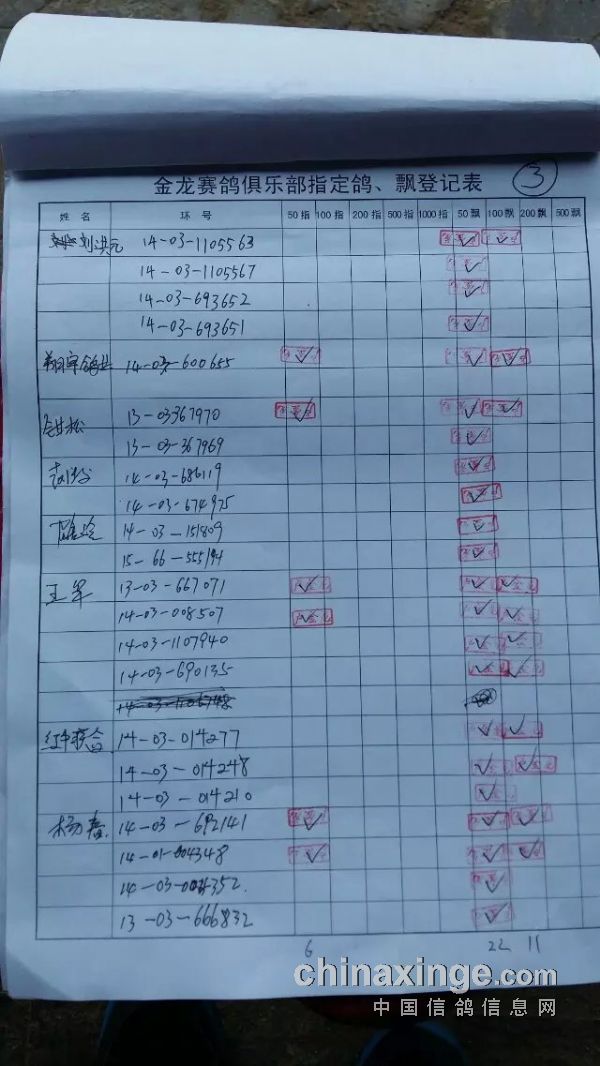 金龙赛鸽俱乐部指定鸽、飘登记表 ③
姓 名 环 号 50指 100指 200指 500指 1000指 50飘 100飘 200飘 500飘
刘洪元 14-03-1105563
14-03-1105567
14-03-693652
14-03-693651
14-03-600655
13-03367970
13-03-367969
14-03-686119
14-03-674975
14-03-151809
15-66-555194
王军 13-03-667071
14-03-008507
14-03-1107940
14-03-690135
14-03-014277
14-03-014248
14-03-014210
杨春 14-03-692141
14-01-004348
13-03-666832
6 22 11
chinaxinge.com
中国信鸽信息网